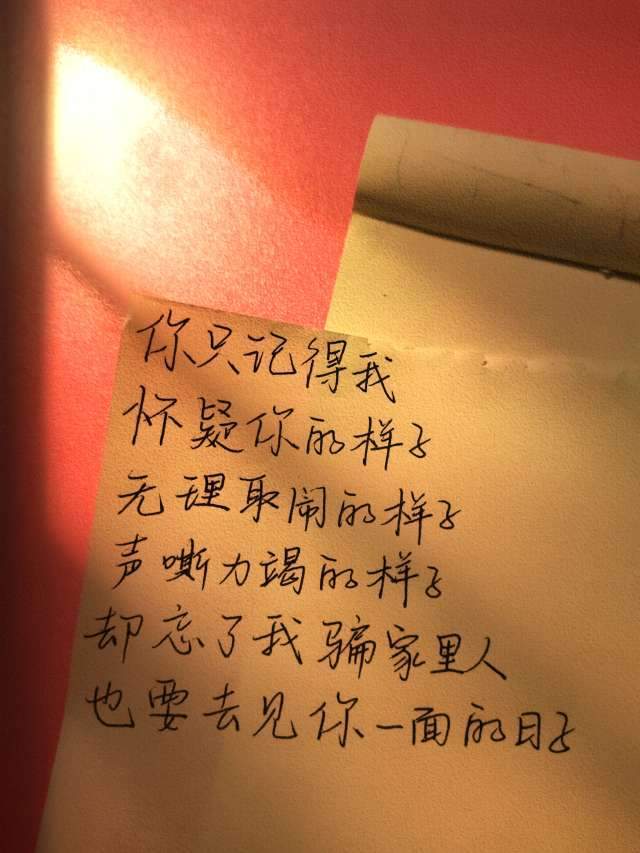 你只记得我
怀疑你的样子
无理取闹的样子
声嘶力竭的样子
却忘了我骗家里人
也要去见你一面的日子